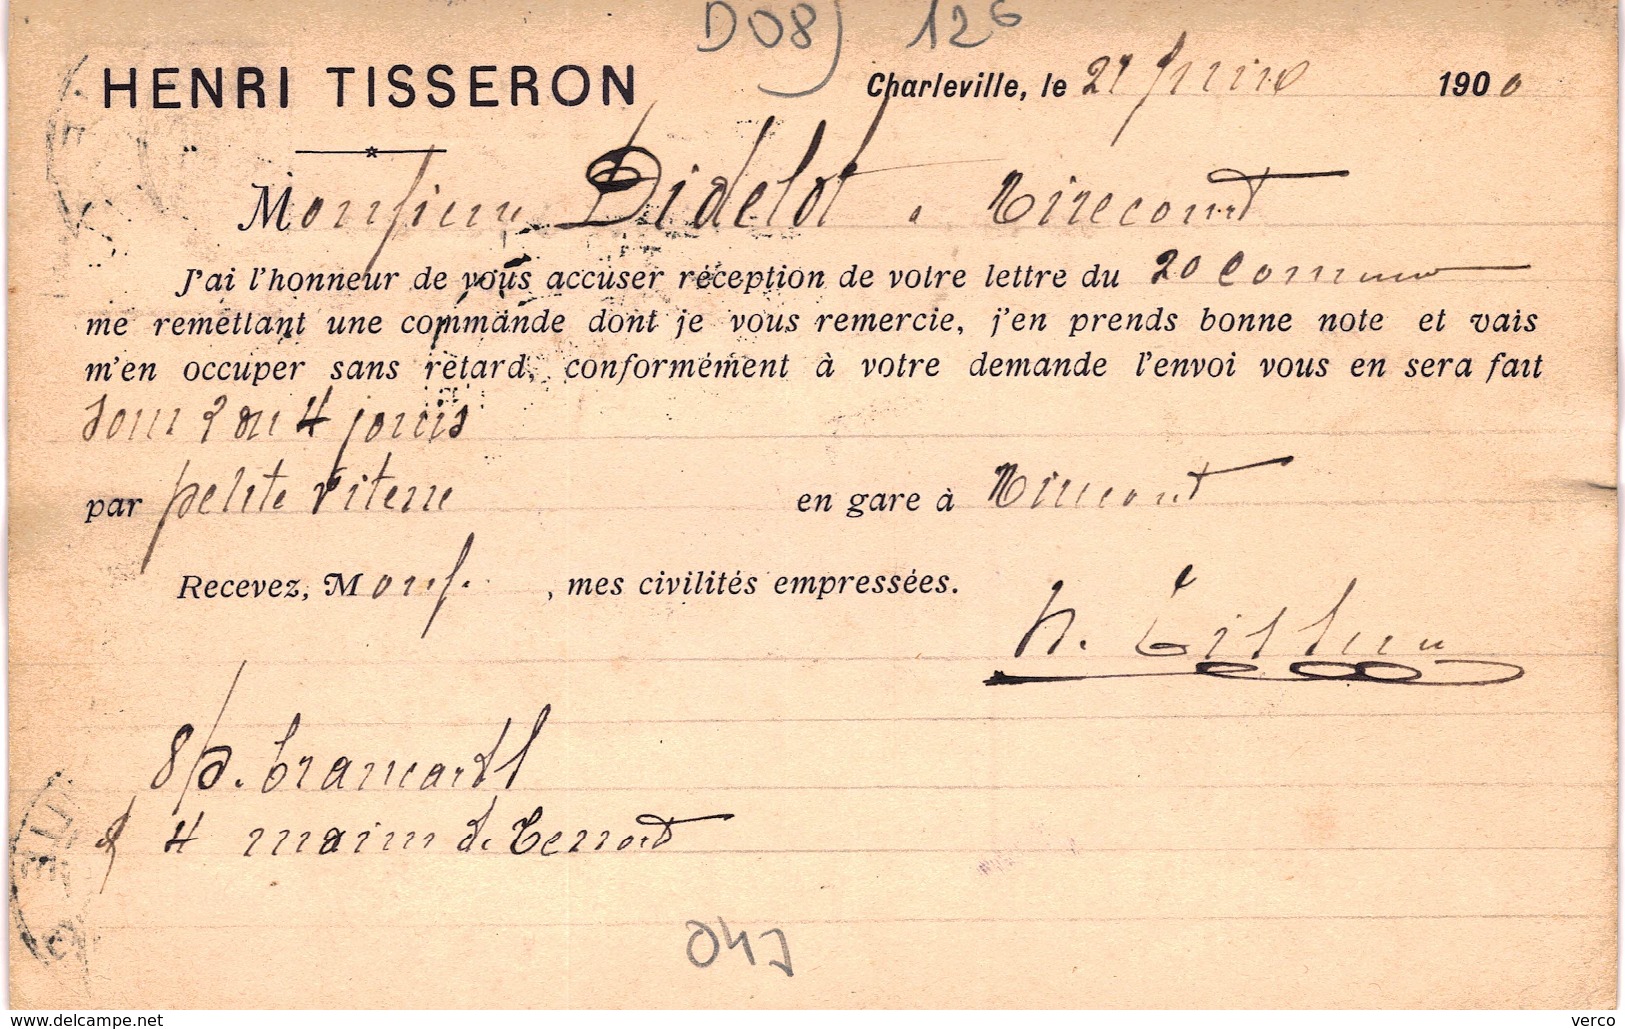 D08) 126
HENRI TISSERON
Charleville, le 21 Juin 1900
Monsieur Didelot a Mirecourt
J'ai l'honneur de vous accuser réception de votre lettre du 20 Courant
me remettant une commande dont je vous remercie, j'en prends bonne note et vais
m'en occuper sans retard, conformément à votre demande l'envoi vous en sera fait
sous 2 ou 4 jours
par petite Vitesse en gare à Mirecourt
Recevez, Monsr , mes civilités empressées.
H. Tisseron
8 p. brancards
& 4 mains de
047
www.delcampe.net
verco